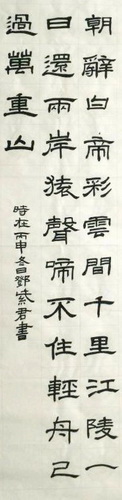 朝辭白帝彩雲間千里江陵一
日還兩岸猿聲啼不住輕舟已
過萬重山
時在丙申冬日鄧紫君書